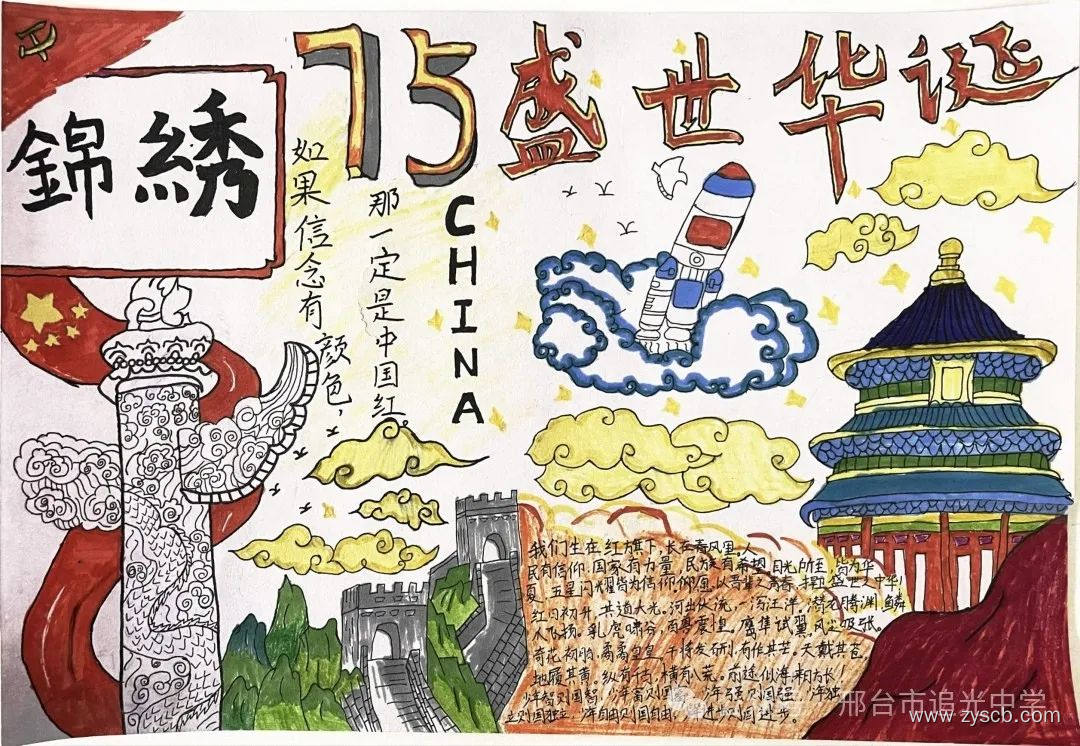 75 盛世华诞
錦綉
如果信念有颜色，
那一定是中国红。
CHINA
我们生在红旗下，长在春风里，人
民有信仰，国家有力量，民族有希望，目光所至，皆为华
夏，五星闪耀皆为信仰，仰
红日初升，其道大光。河出伏流，一泻汪洋。潜龙腾渊，鳞
爪飞扬。乳虎啸谷，百兽震惶。鹰隼试翼，风尘吸张。
奇花初胎，矞矞皇皇。干将发硎，有作其芒。天戴其苍，
地履其黄。纵有千古，横有八荒。前途似海，来日方长
少年智则国智，少年富则国富，少年强则国强，少年独
立则国独立，少年自由则国自由，进步则国进步。
邢台市追光中学
www.zyscb.com